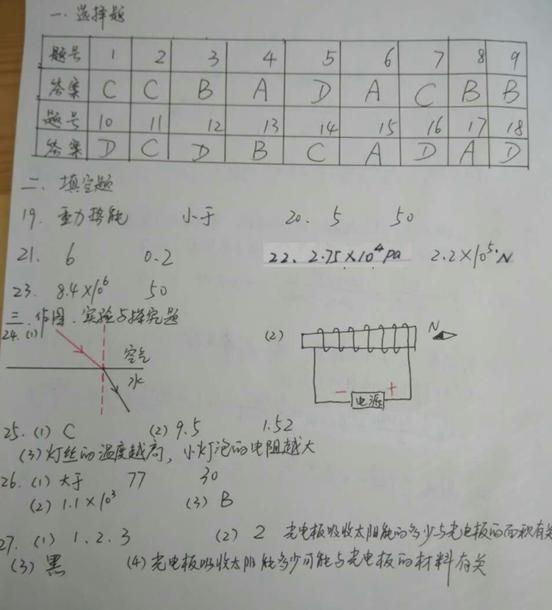 一、选择题
题号 1 2 3 4 5 6 7 8 9
答案 C C B A D A C B B
题号 10 11 12 13 14 15 16 17 18
答案 D C D B C A D A D
二、填空题
19. 重力势能 小于 20. 5 50
21. 6 0.2 22. 2.75×10⁴Pa 2.2×10⁵N
23. 8.4×10⁶ 50
三.作图、实验与探究题
24.(1) (2) N
空气
水
- 电源 +
25.(1) C (2) 9.5 1.52
(3)灯丝的温度越高,小灯泡的电阻越大
26.(1)大于 77 30
(2) 1.1×10³ (3) B
27.(1) 1、2、3 (2) 2 光电板吸收太阳能的多少与光电板的面积有关
(3) 黑 (4)光电板吸收太阳能多少可能与光电板的材料有关